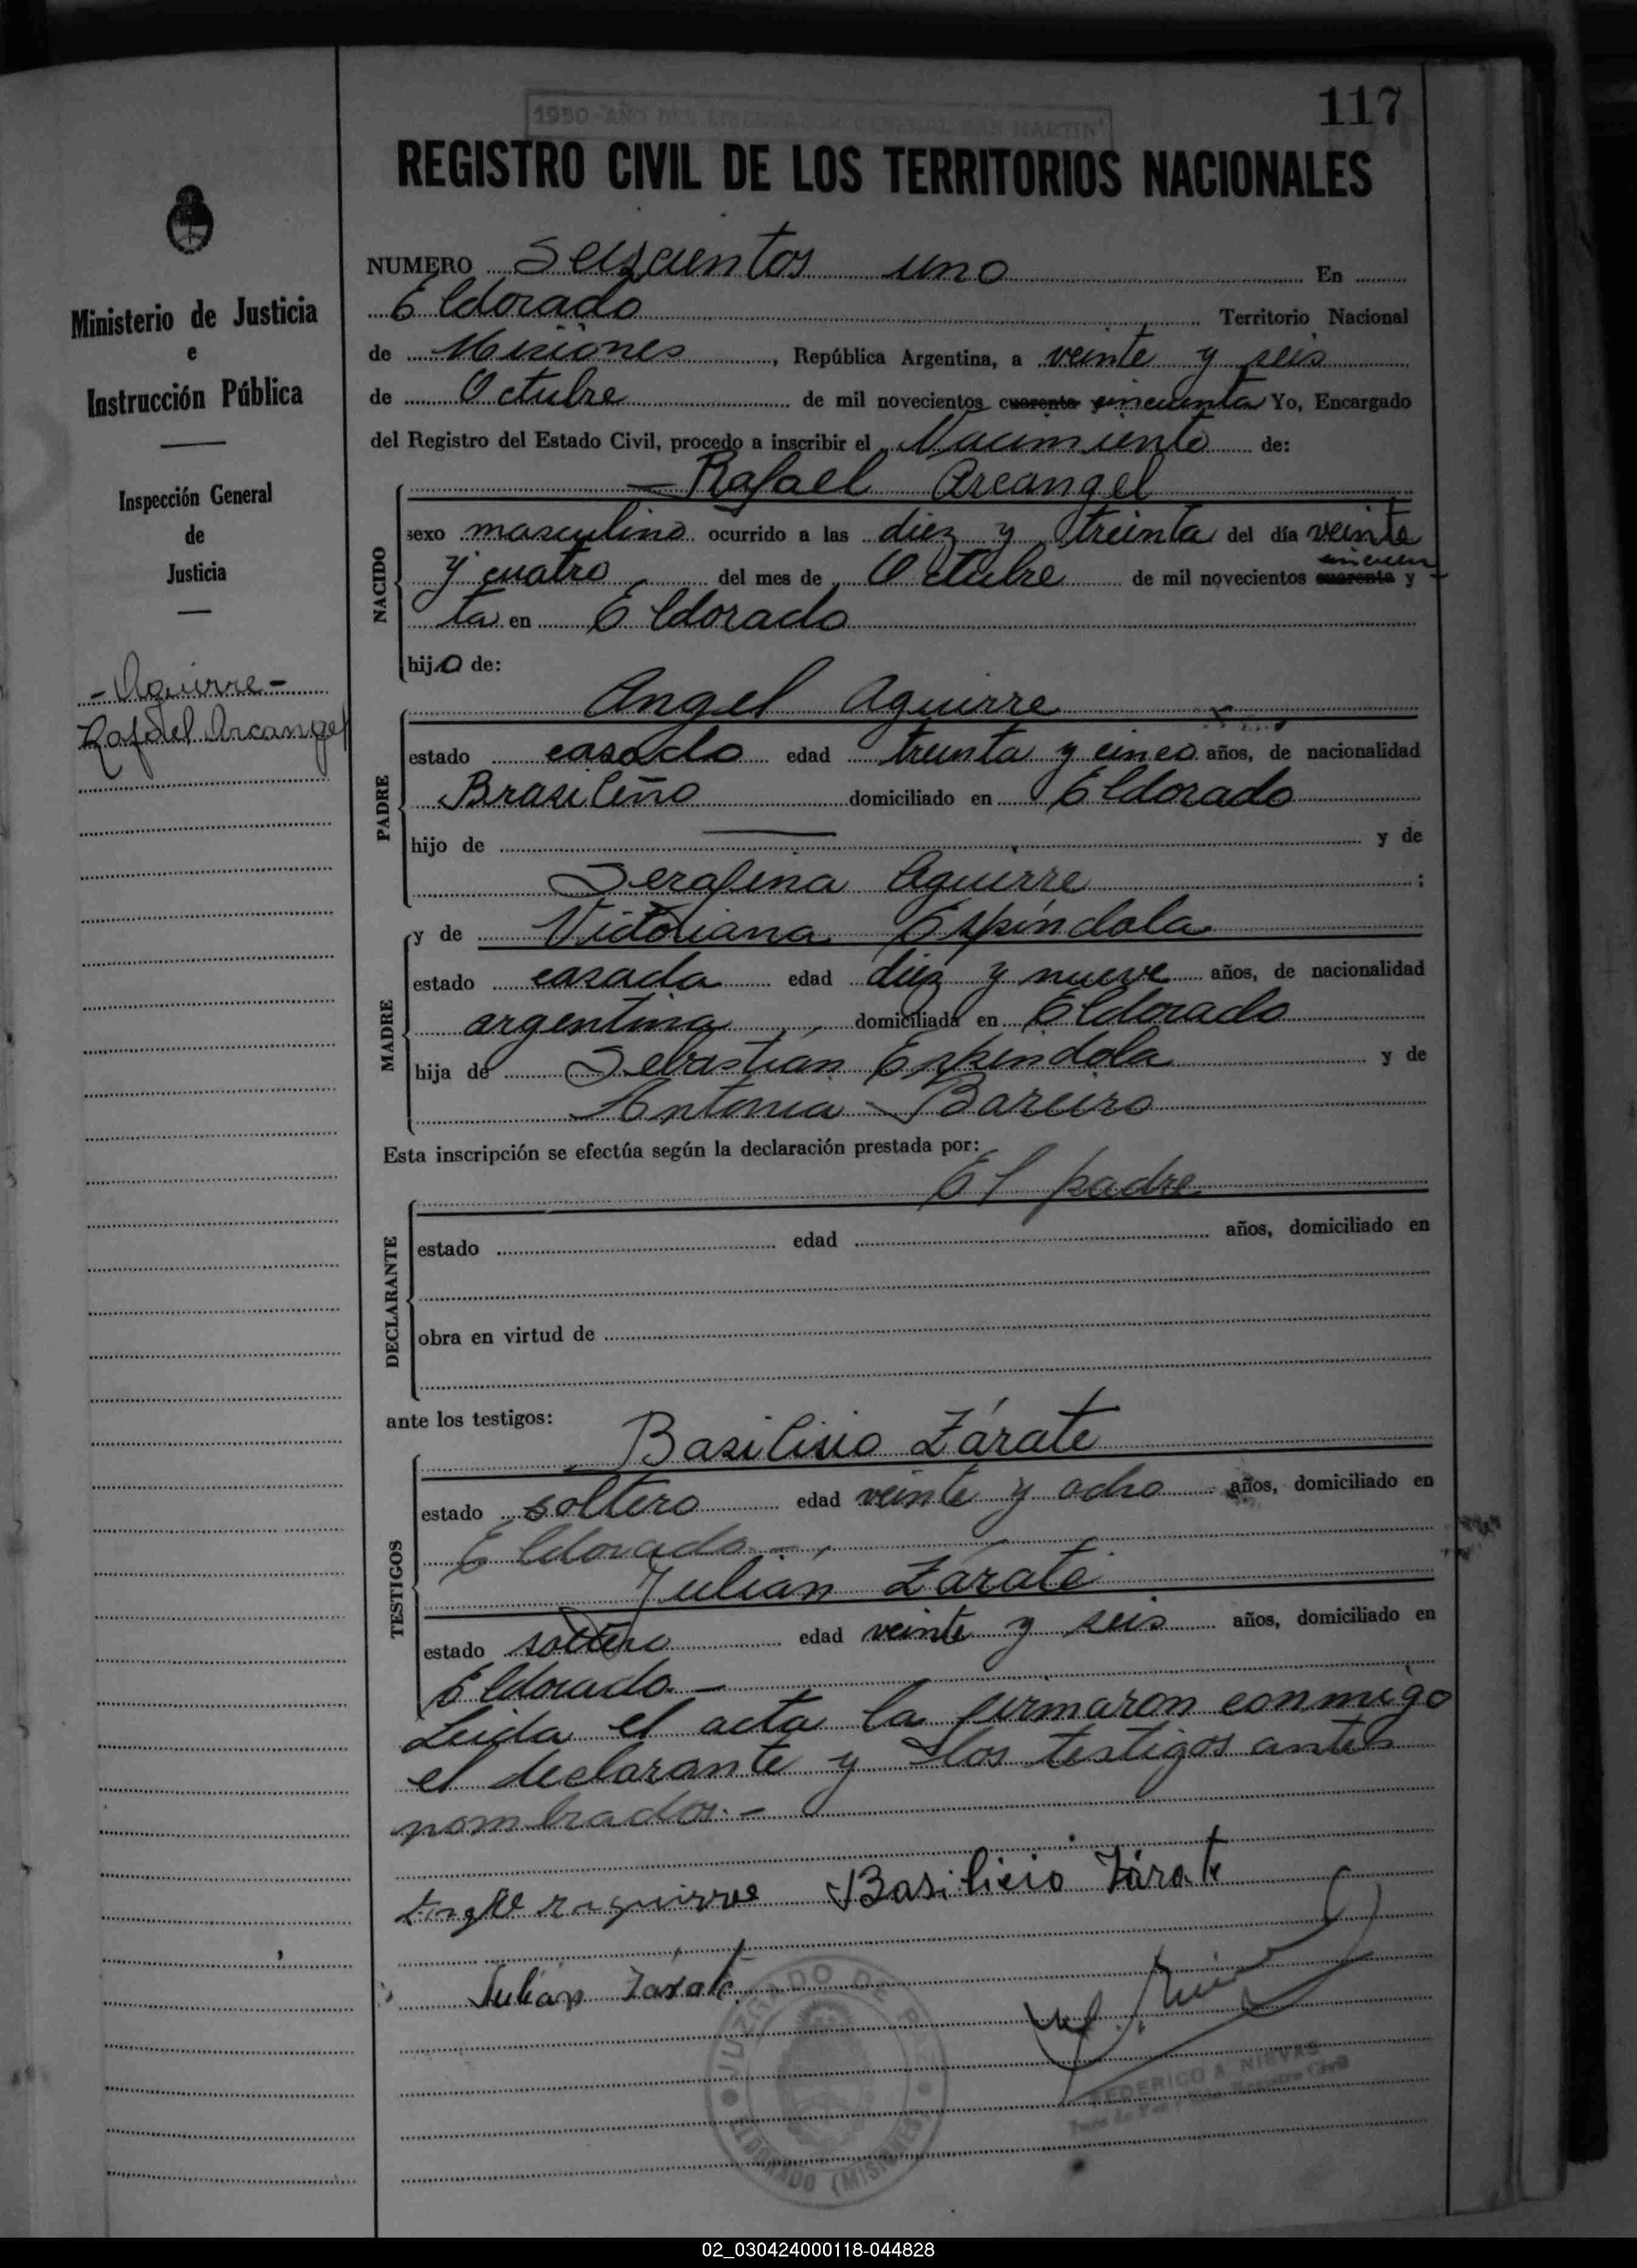 117
1950-AÑO DEL LIBERTADOR GENERAL SAN MARTIN
REGISTRO CIVIL DE LOS TERRITORIOS NACIONALES
Ministerio de Justicia
e
Instrucción Pública
Inspección General
de
Justicia
- Aguirre -
Rafael Arcangel
NUMERO Seiscientos uno En
Eldorado Territorio Nacional
de Misiones, República Argentina, a veinte y seis
de Octubre de mil novecientos cuarenta y cincuenta Yo, Encargado
del Registro del Estado Civil, procedo a inscribir el Nacimiento de:
NACIDO
Rafael Arcangel
sexo masculino ocurrido a las diez y treinta del día veinte
y cuatro del mes de Octubre de mil novecientos cuarenta y cincuen
ta en Eldorado
hijo de:
PADRE
Angel Aguirre
estado casado edad treinta y cinco años, de nacionalidad
Brasileño domiciliado en Eldorado
hijo de y de
Serafina Aguirre ;
MADRE
y de Vidoriana Espíndola
estado casada edad diez y nueve años, de nacionalidad
argentina domiciliada en Eldorado
hija de Sebastián Espíndola y de
Antonia Bareiro
Esta inscripción se efectúa según la declaración prestada por:
DECLARANTE
El padre
estado edad años, domiciliado en
obra en virtud de
ante los testigos:
TESTIGOS
Basilisio Zárate
estado soltero edad veinte y ocho años, domiciliado en
Eldorado -
Julián Zárate
estado soltero edad veinte y seis años, domiciliado en
Eldorado. -
Leida el acta la firmaron conmigo
el declarante y los testigos antes
nombrados. -
Basilicio Zárate
Julián Zarate
JUZGADO DE PAZ
ELDORADO (MISIONES)
FEDERICO A. NIEVAS
Juez de Paz y del Registro Civil
02_030424000118-044828